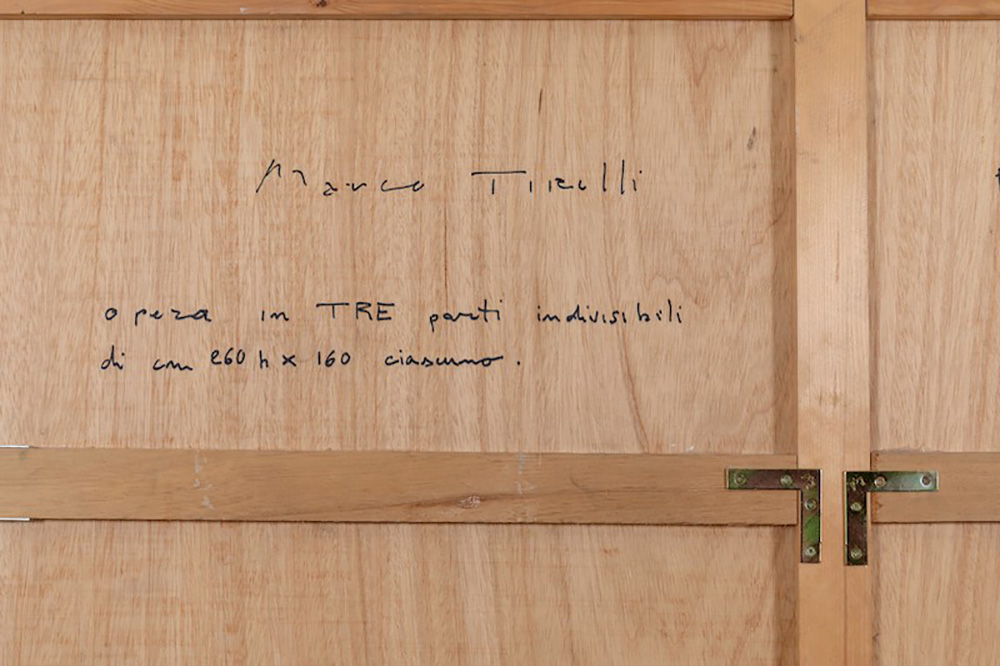 Marco Tirelli
opera in TRE parti indivisibili
di cm 260 h x 160 ciascuno.